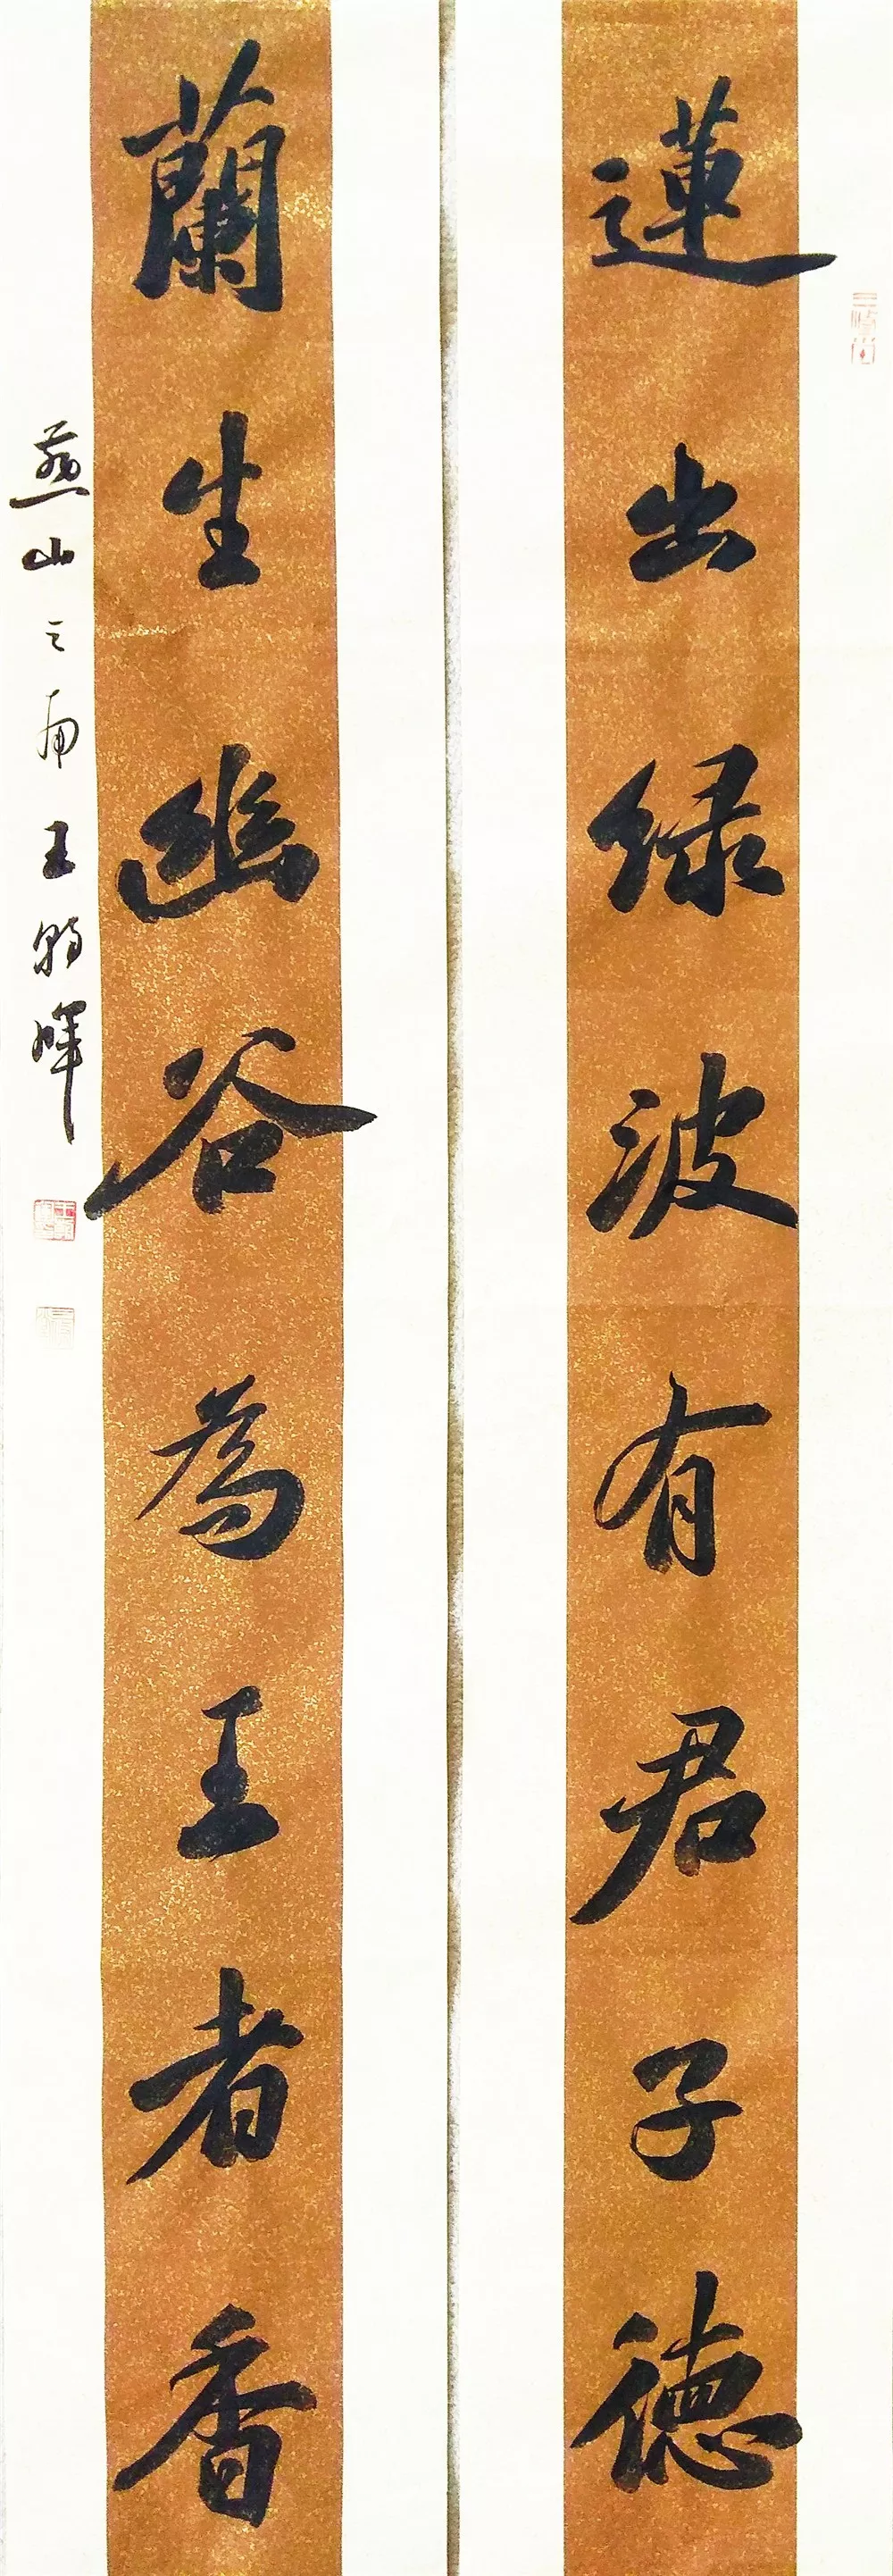 蓮出绿波有君子德
蘭生幽谷為王者香
燕山之南王朝暉